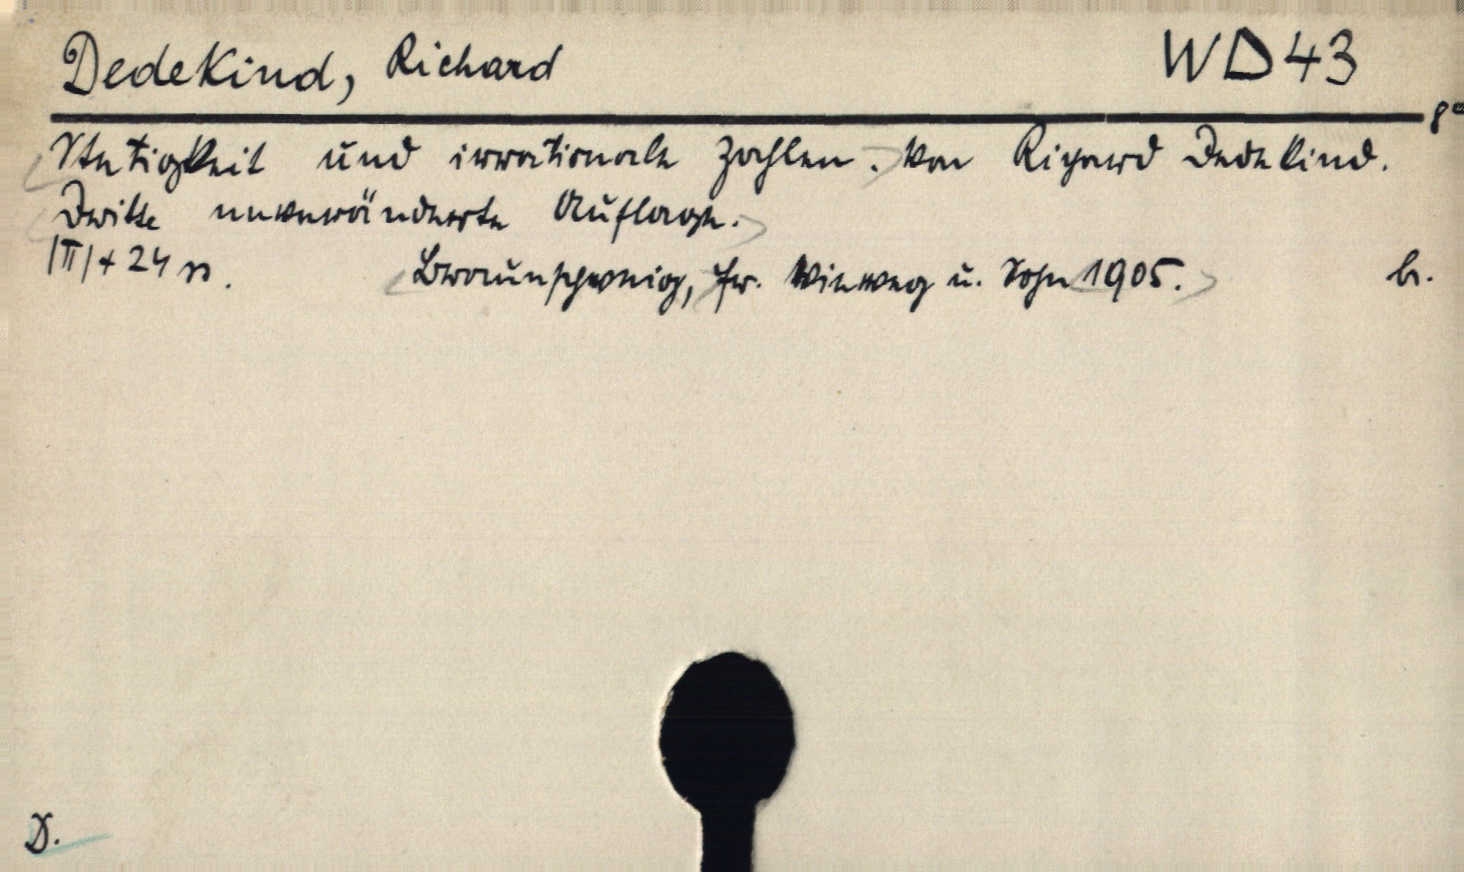 Dedekind, Richard WD43
8°
Stetigkeit und irrationale Zahlen. Von Richard Dedekind.
Dritte unveränderte Auflage.
|II| + 24 S. Braunschweig, Fr. Vieweg u. Sohn 1905. b.
D.